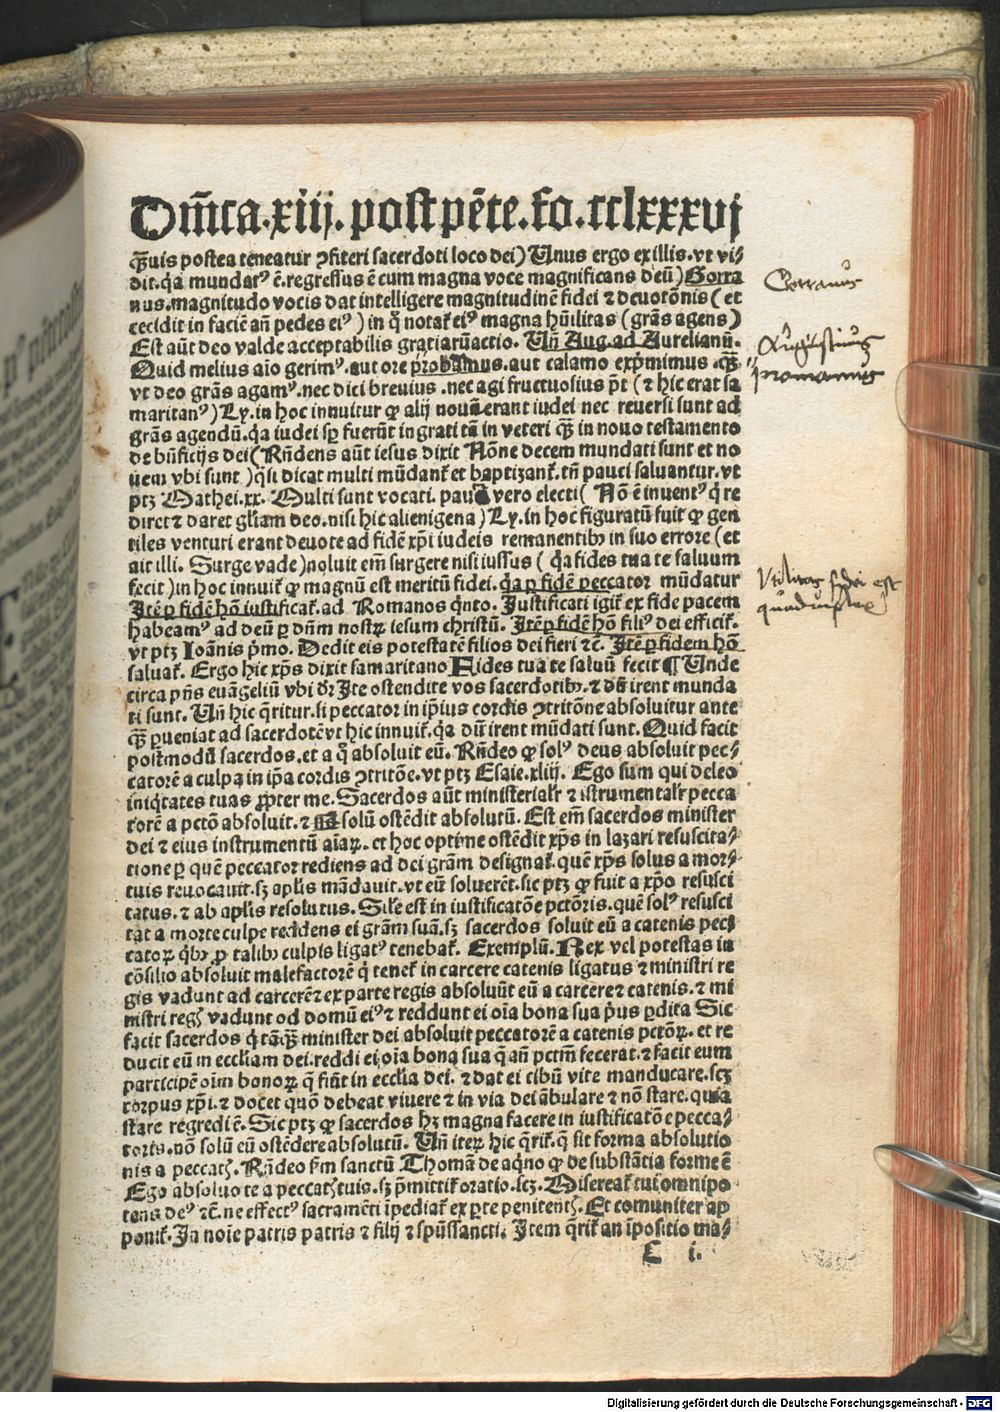 Dm̄ca.xiij.post pēte.fo.cclxxxvj
q̄uis postea teneatur ꝯfiteri sacerdoti loco dei) Unus ergo ex illis.vt vi⸗
dit.q̇a mundatꝰ ē.regressus ē cum magna voce magnificans deū) Gorra
nus.magnitudo vocis dat intelligere magnitudinē fidei ⁊ deuotōnis (et
cecidit in faciē an̄ pedes eiꝰ) in q̊ notať eiꝰ magna hūilitas (grās agens)
Est aūt deo valde acceptabilis gratiarūactio. Un̄ Aug. ad Aurelianū.
Quid melius aīo gerimꝰ. aut ore ꝓbamus.aut calamo exp̄mimus. q̄⸗
vt deo grās agamꝰ.nec dici breuius.nec agi fructuosius pōt (⁊ hic erat sa
maritanꝰ) Ly.in hoc innuitur ꝙ alij nouē erant iudei nec reuersi sunt ad
grās agendū.q̇a iudei sp̄ fuerūt ingrati tā in veteri q̄ in nouo testamento
de bn̄ficijs dei (Rn̄dens aūt iesus dixit Nōne decem mundati sunt et no
uem vbi sunt) q̇si dicat multi mūdanť et baptizanť.tn̄ pauci saluantur.vt
ptꝫ Mathei.xx. Multi sunt vocati. pauci vero electi (Nō ē inuentꝰ q̇ re
diret ⁊ daret gl̄iam deo.nisi hic alienigena) Ly.in hoc figuratū fuit ꝙ gen
tiles venturi erant deuote ad fidē xp̄i iudeis remanentibꝰ in suo errore (et
ait illi. Surge vade) noluit em̄ surgere nisi iussus (q̇a fides tua te saluum
fecit) in hoc innuiť ꝙ magnū est meritū fidei. q̇a ꝑ fidē peccator mūdatur
Itē ꝑ fidē hō iustificať.ad Romanos q̇nto. Justificati igiť ex fide pacem
habeamꝰ ad deū ꝑ dn̄m nostꝝ iesum christū. Itē ꝑ fidē hō filiꝰ dei efficiť.
vt ptꝫ Ioānis p̄mo. Dedit eis potestatē filios dei fieri ⁊c̄. Itē ꝑ fidem hō
saluať. Ergo hic xp̄s dixit samaritano Fides tua te saluū fecit ¶ Unde
circa p̄ns euāgeliū vbi dr̄ Ite ostendite vos sacerdotibꝰ.⁊ dū irent munda
ti sunt. Un̄ hic q̄ritur.si peccator in ip̄ius cordis ꝯtritōne absoluitur ante
q̄ ꝑueniat ad sacerdotē vt hic innuiť. q̇a dū irent mūdati sunt. Quid facit
postmodū sacerdos.et a q̊ absoluit eū. Rn̄deo ꝙ solꝰ deus absoluit pec⸗
catorē a culpa in ip̄a cordis ꝯtritōe.vt ptꝫ Esaie.xliij. Ego sum qui deleo
iniq̇tates tuas ꝓpter me. Sacerdos aūt ministerialiť ⁊ īstrumentaliť pecca
torē a pctō absoluit. ⁊ solū ostēdit absolutū. Est em̄ sacerdos minister
dei ⁊ eius instrumentū aīaꝝ.et hoc optime ostēdit xp̄s in lazari resuscita⸗
tione ꝑ quē peccator rediens ad dei grām designať.quē xp̄s solus a mor⸗
tuis reuocauit.sꝫ aplīs mādauit.vt eū soluerēt.sic ptꝫ ꝙ fuit a xp̄o resusci
tatus.⁊ ab aplīs resolutus. Sile est in iustificatōe pctōris.quē solꝰ resusci
tat a morte culpe reddens ei grām suā.sꝫ sacerdos soluit eū a catenis pec⸗
catoꝝ q̇bꝰ ꝓ talibꝰ culpis ligatꝰ tenebať. Exemplū. Rex vel potestas in
cōsilio absoluit malefactorē q̇ teneť in carcere catenis ligatus ⁊ ministri re
gis vadunt ad carcerē ⁊ ex parte regis absoluūt eū a carcere ⁊ catenis. ⁊ mi
nistri regꝭ vadunt od domū eiꝰ ⁊ reddunt ei oīa bona sua ṗus ꝑdita Sic
facit sacerdos q̇ tāq̄ minister dei absoluit peccatorē a catenis pctōꝝ. et re
ducit eū in eccl̄iam dei.reddi ei oīa bona sua q̄ an̄ pctm̄ fecerat.⁊ facit eum
participē oīm bonoꝝ q̄ fiūt in eccl̄ia dei. ⁊ dat ei cibū vite manducare.scꝫ
corpus xp̄i.⁊ docet quō debeat viuere ⁊ in via dei ābulare ⁊ nō stare.quia
stare regredi ē. Sic ptꝫ ꝙ sacerdos hꝫ magna facere in iustificatōe pecca⸗
toris.nō solū eū ostēdere absolutū. Un̄ iteꝝ hic q̄riť.q̄ sit forma absolutio
nis a peccatꝭ. Rn̄deo ẜm sanctū Thomā de aq̇no ꝙ de substātia forme ē
Ego absoluo te a peccatꝭ tuis.sꝫ p̄mittiť oratio.scꝫ. Misereať tui omnipo
tens deꝰ ⁊c̄.ne effectꝰ sacramēti īpediať ex ꝑte penitentꝭ. Et cōmuniter ap
poniť. In noīe patris patris ⁊ filij ⁊ sp̄ussancti. Item q̄riť an īpositio ma⸗
C i.
Gorranus
Augustinus
Romanus
Vtilitas fidei est
quadruplex
Digitalisierung gefördert durch die Deutsche Forschungsgemeinschaft - DFG